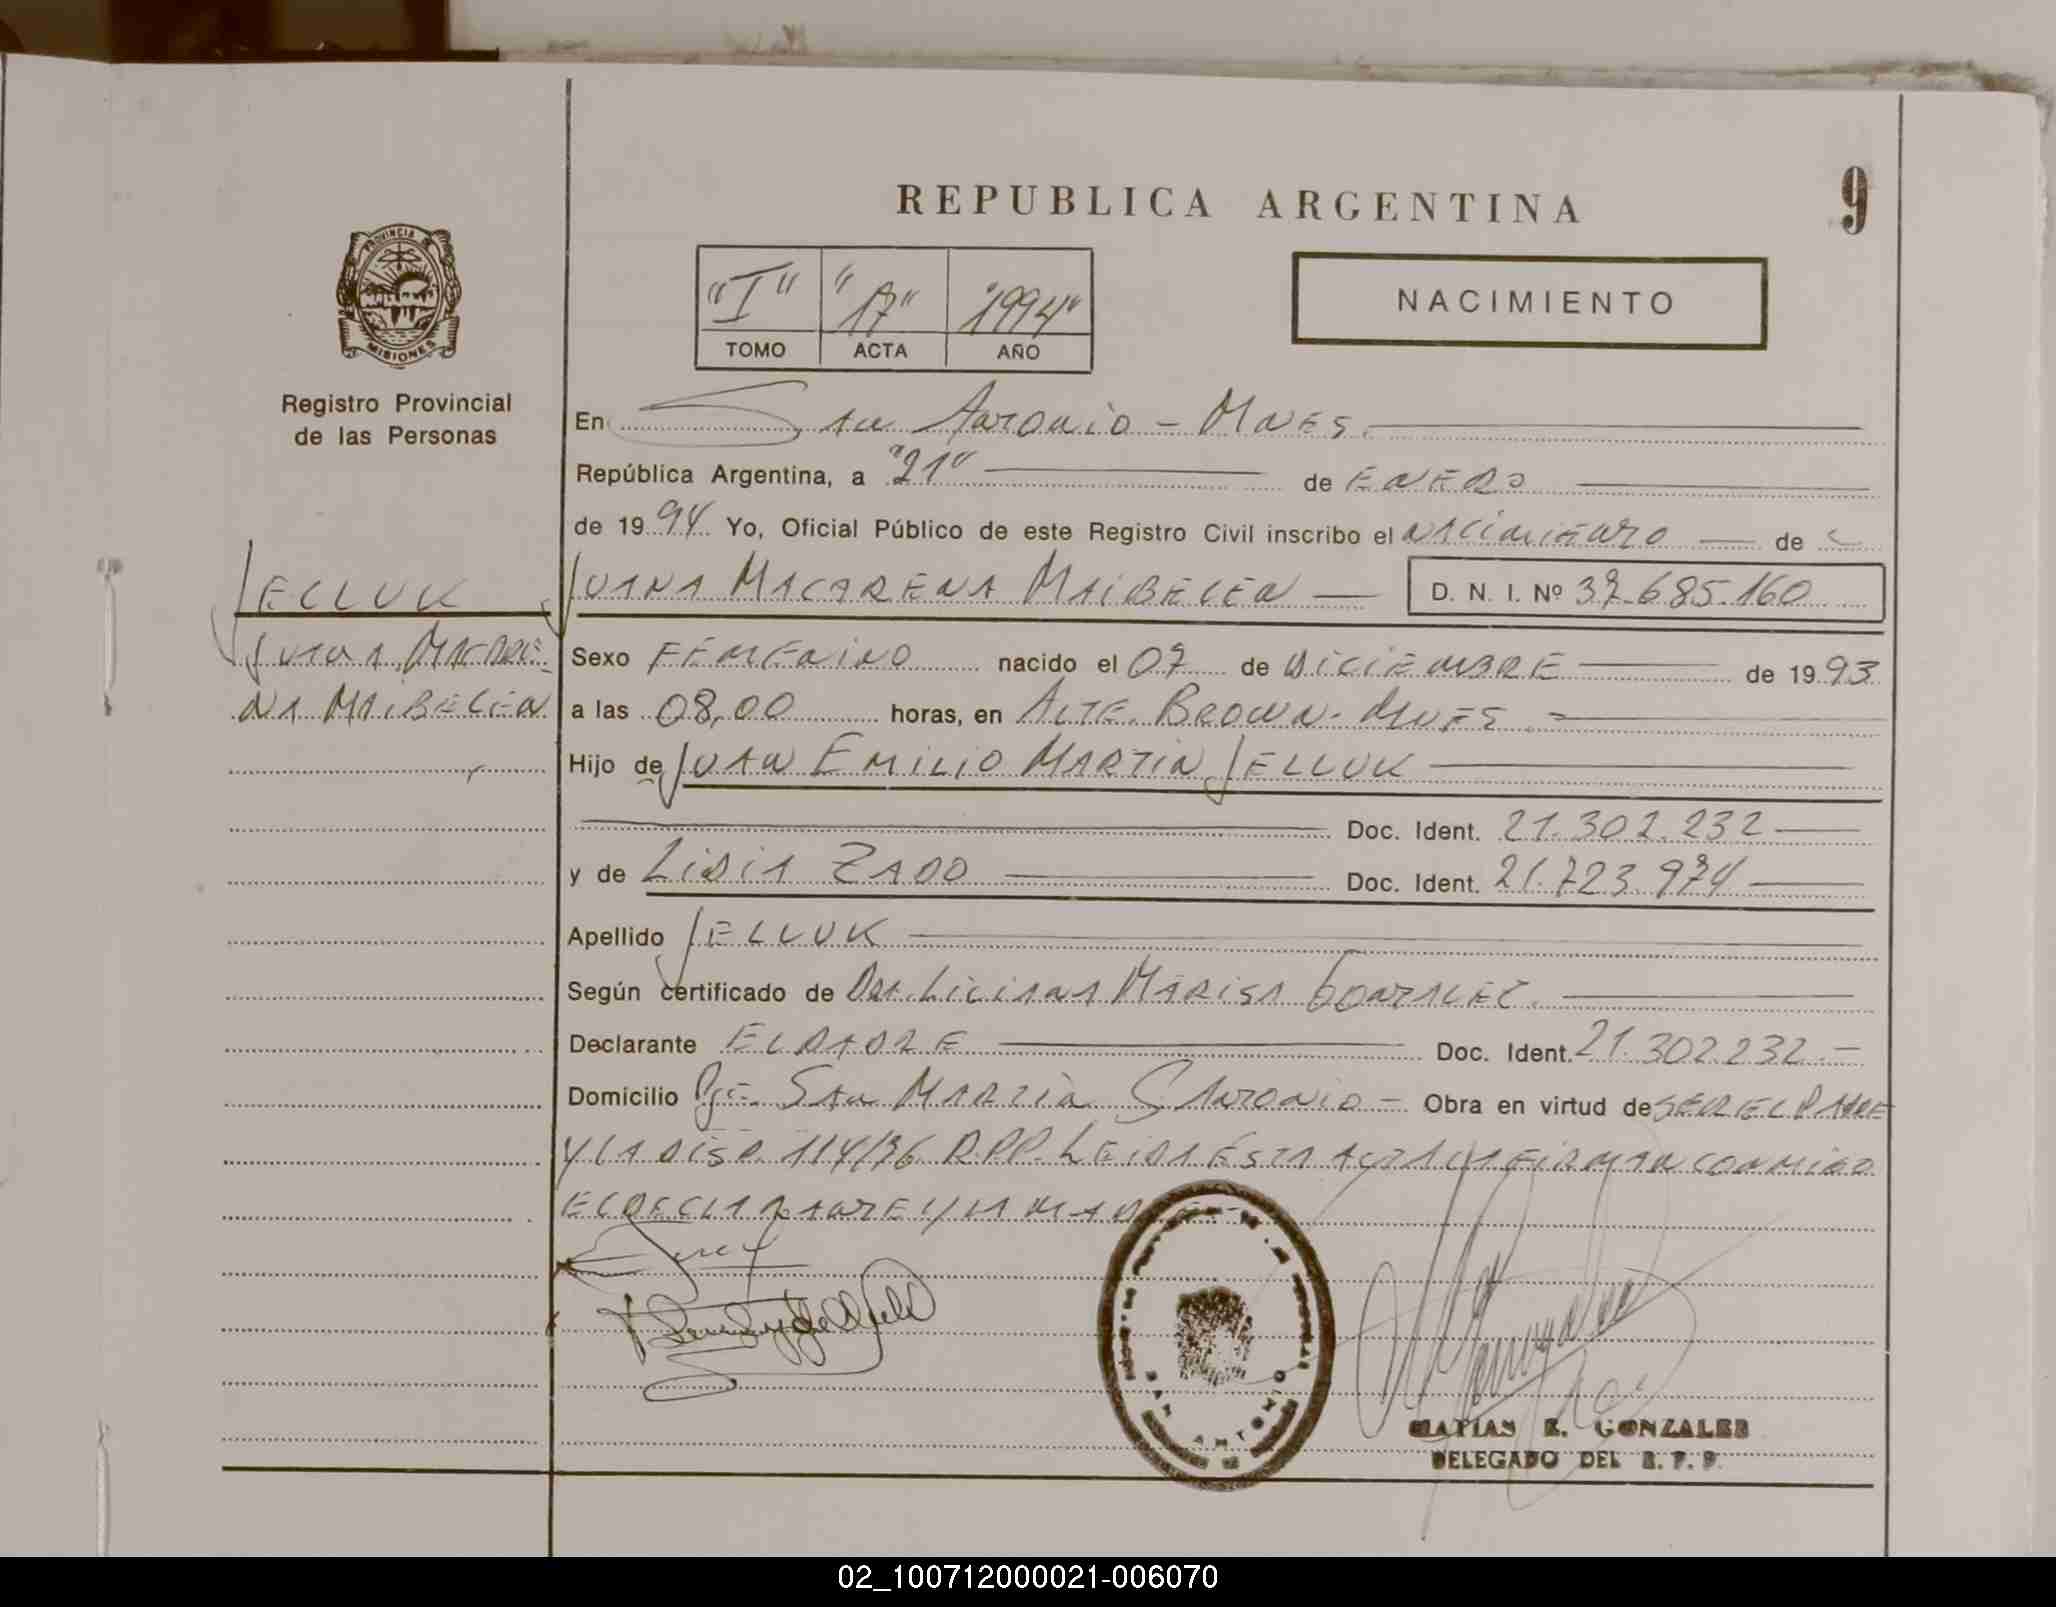 REPUBLICA ARGENTINA
9
PROVINCIA DE
MISIONES
Registro Provincial
de las Personas
"I" "17" "1994"
TOMO ACTA AÑO
NACIMIENTO
En San Antonio - Mnes.
República Argentina, a "21" de ENERO
de 1994 Yo, Oficial Público de este Registro Civil inscribo el NACIMIENTO de
JUANA MACARENA MAIBELEN D. N. I. Nº 37.685.160
JELLUK
JUANA MACARE-
NA MAIBELEN
Sexo FEMENINO nacido el 07 de DICIEMBRE de 1993
a las 08,00 horas, en ALTE. BROWN - MNES.
Hijo de JUAN EMILIO MARTIN JELLUK
Doc. Ident. 21.302.232
y de LIDIA ZADO Doc. Ident. 21.723.974
Apellido JELLUK
Según certificado de DRA. LILIANA MARISA GONZALEZ.
Declarante EL PADRE Doc. Ident. 21.302.232.-
Domicilio Pje. SAN MARTIN S. ANTONIO - Obra en virtud de SER EL PADRE
Y LA DISP. 114/86 R.P.P. LEIDA ESTA ACTA LA FIRMAN CONMIGO
EL DECLARANTE Y LA MADRE
SAN ANTONIO
MATIAS E. GONZALEZ
DELEGADO DEL R. P. P.
02_100712000021-006070